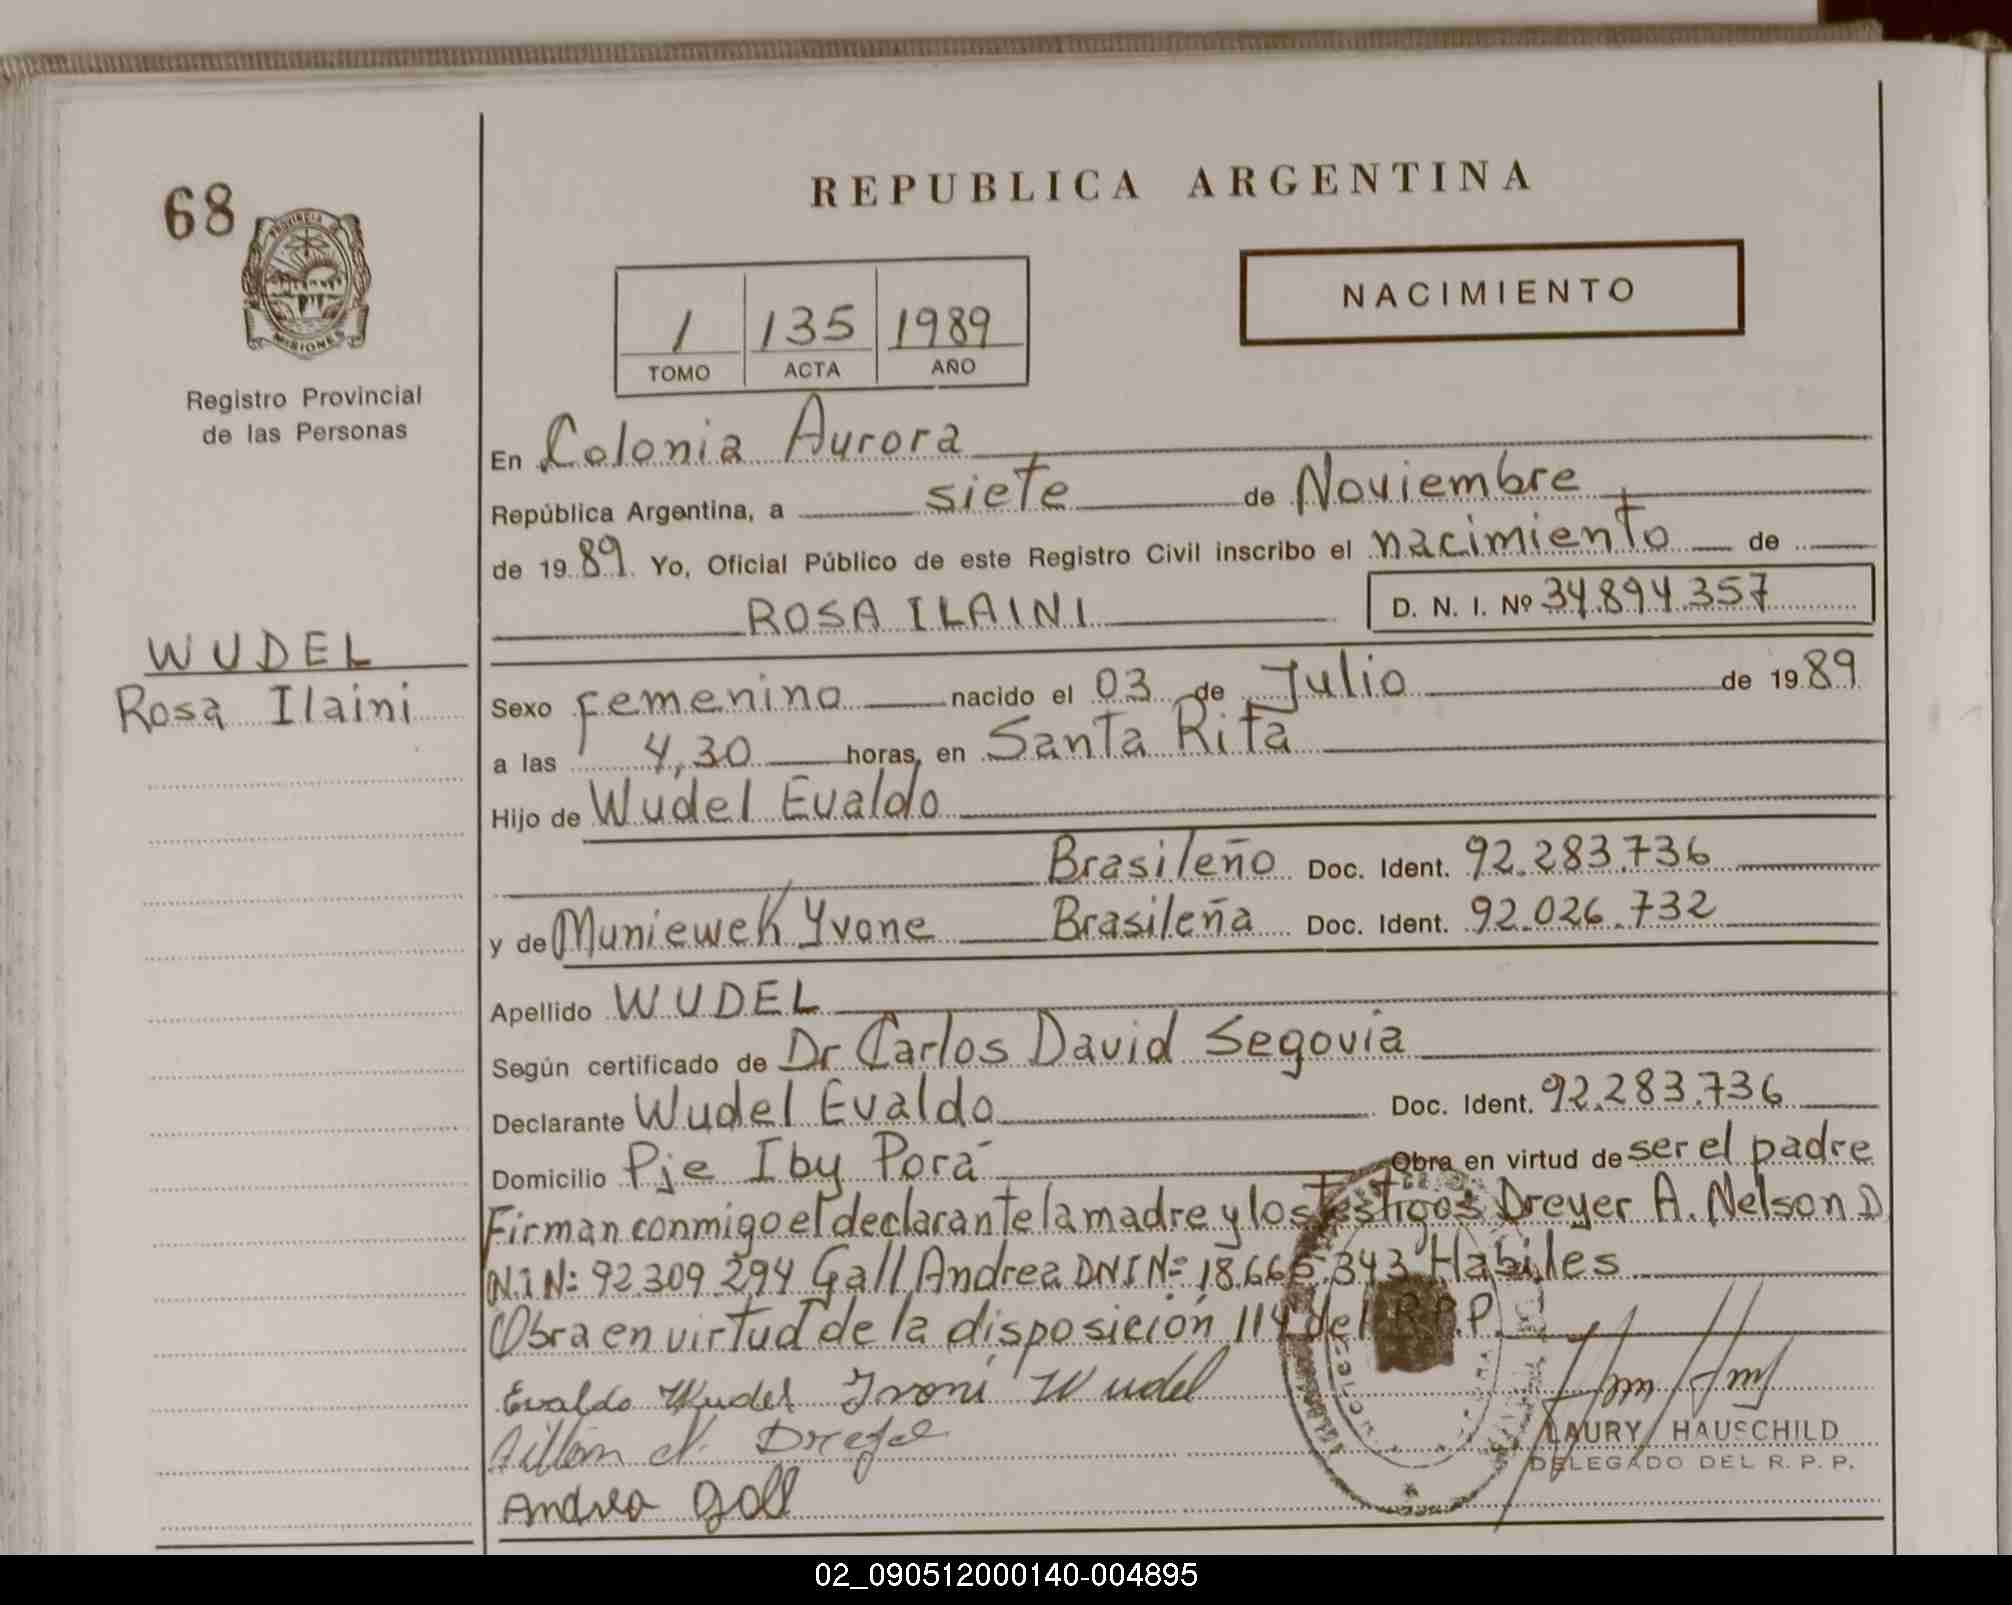 68
PROVINCIA
MISIONES
Registro Provincial
de las Personas
WUDEL
Rosa Ilaini
REPUBLICA ARGENTINA
1 135 1989
TOMO ACTA AÑO
NACIMIENTO
En Colonia Aurora
República Argentina, a siete de Noviembre
de 19 89 Yo, Oficial Público de este Registro Civil inscribo el nacimiento de
ROSA ILAINI D. N. I. Nº 34.894.357
Sexo Femenino nacido el 03 de Julio de 19 89
a las 4,30 horas, en Santa Rita
Hijo de Wudel Evaldo
Brasileño Doc. Ident. 92.283.736
y de Muniewek Yvone Brasileña Doc. Ident. 92.026.732
Apellido WUDEL
Según certificado de Dr Carlos David Segovia
Declarante Wudel Evaldo Doc. Ident. 92.283.736
Domicilio Pje Iby Porá Obra en virtud de ser el padre
Firman conmigo el declarante la madre y los testigos Dreyer A. Nelson D
N.I N= 92.309.294 Gall Andrea DNI N= 18.665.343 Habiles
Obra en virtud de la disposición 114 del R.P.P.
Evaldo Wudel Ivoni Wudel
Andrea Gall
LAURY HAUSCHILD
DELEGADO DEL R. P. P.
02_090512000140-004895